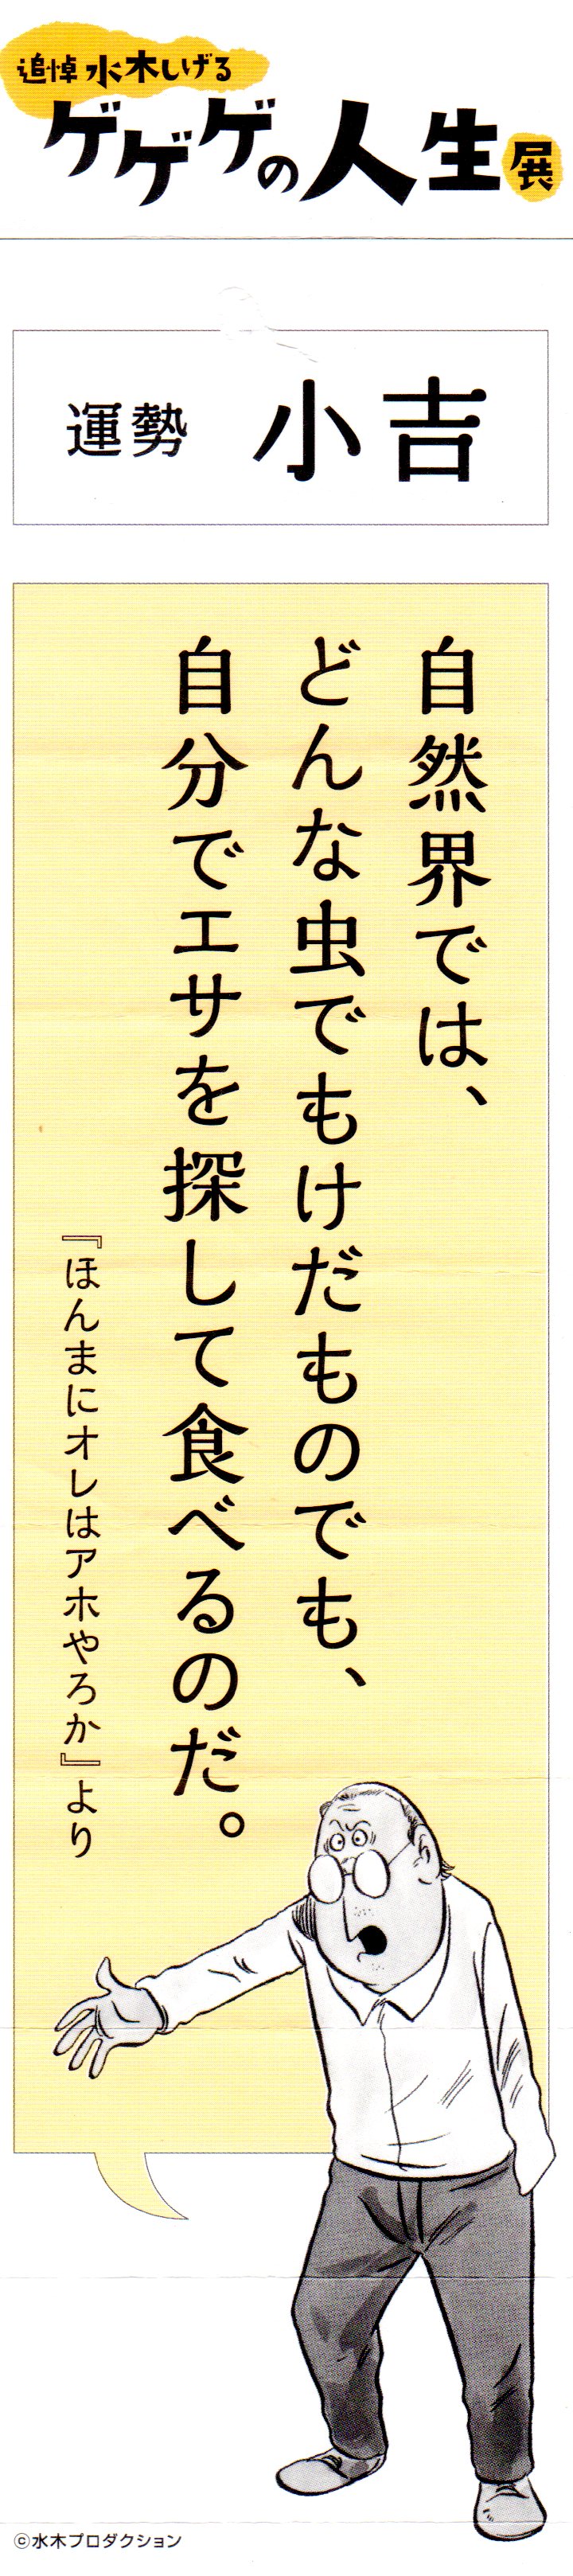 追悼 水木しげる
ゲゲゲの人生展
運勢 小吉
自然界では、
どんな虫でもけだものでも、
自分でエサを探して食べるのだ。
『ほんまにオレはアホやろか』より
©水木プロダクション